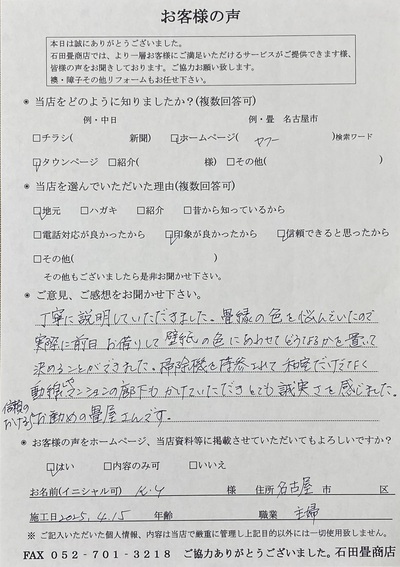 お客様の声
本日は誠にありがとうございました。
石田畳商店では、より一層お客様にご満足いただけるサービスがご提供できます様、
皆様の声をお聞きしております。ご協力お願い致します。
襖・障子その他リフォームもお任せ下さい。
◉ 当店をどのように知りましたか?(複数回答可)
例・中日 例・畳 名古屋市
□チラシ( 新聞) ☑ホームページ( ヤフー )検索ワード
☑タウンページ □紹介( 様) □その他( )
◉ 当店を選んでいただいた理由(複数回答可)
☑地元 □ハガキ □紹介 □昔から知っているから
□電話対応が良かったから ☑印象が良かったから ☑信頼できると思ったから
□その他( )
その他もございましたら是非お聞かせ下さい。
◉ ご意見、ご感想をお聞かせ下さい。
丁寧に説明していただきました。畳縁の色を悩んでいたので
実際に前日お借りして壁紙の色にあわせてどうなるかを置いて
決めることができました。掃除機を持参されて和室だけでなく
動線やマンションの廊下もかけていただきとても誠実さを感じれた。
信頼のおけるお勧めの畳屋さんです。
◉ お客様の声をホームページ、当店資料等に掲載させていただいてもよろしいですか?
☑はい □内容のみ可 □いいえ
お名前(イニシャル可) K.Y 様 住所 名古屋 市 区
施工日 2025.4.15 年齢 職業 主婦
※ ご記入いただいた個人情報、内容は当店で厳重に管理し上記目的以外には一切使用致しません。
FAX 052-701-3218 ご協力ありがとうございました。石田畳商店